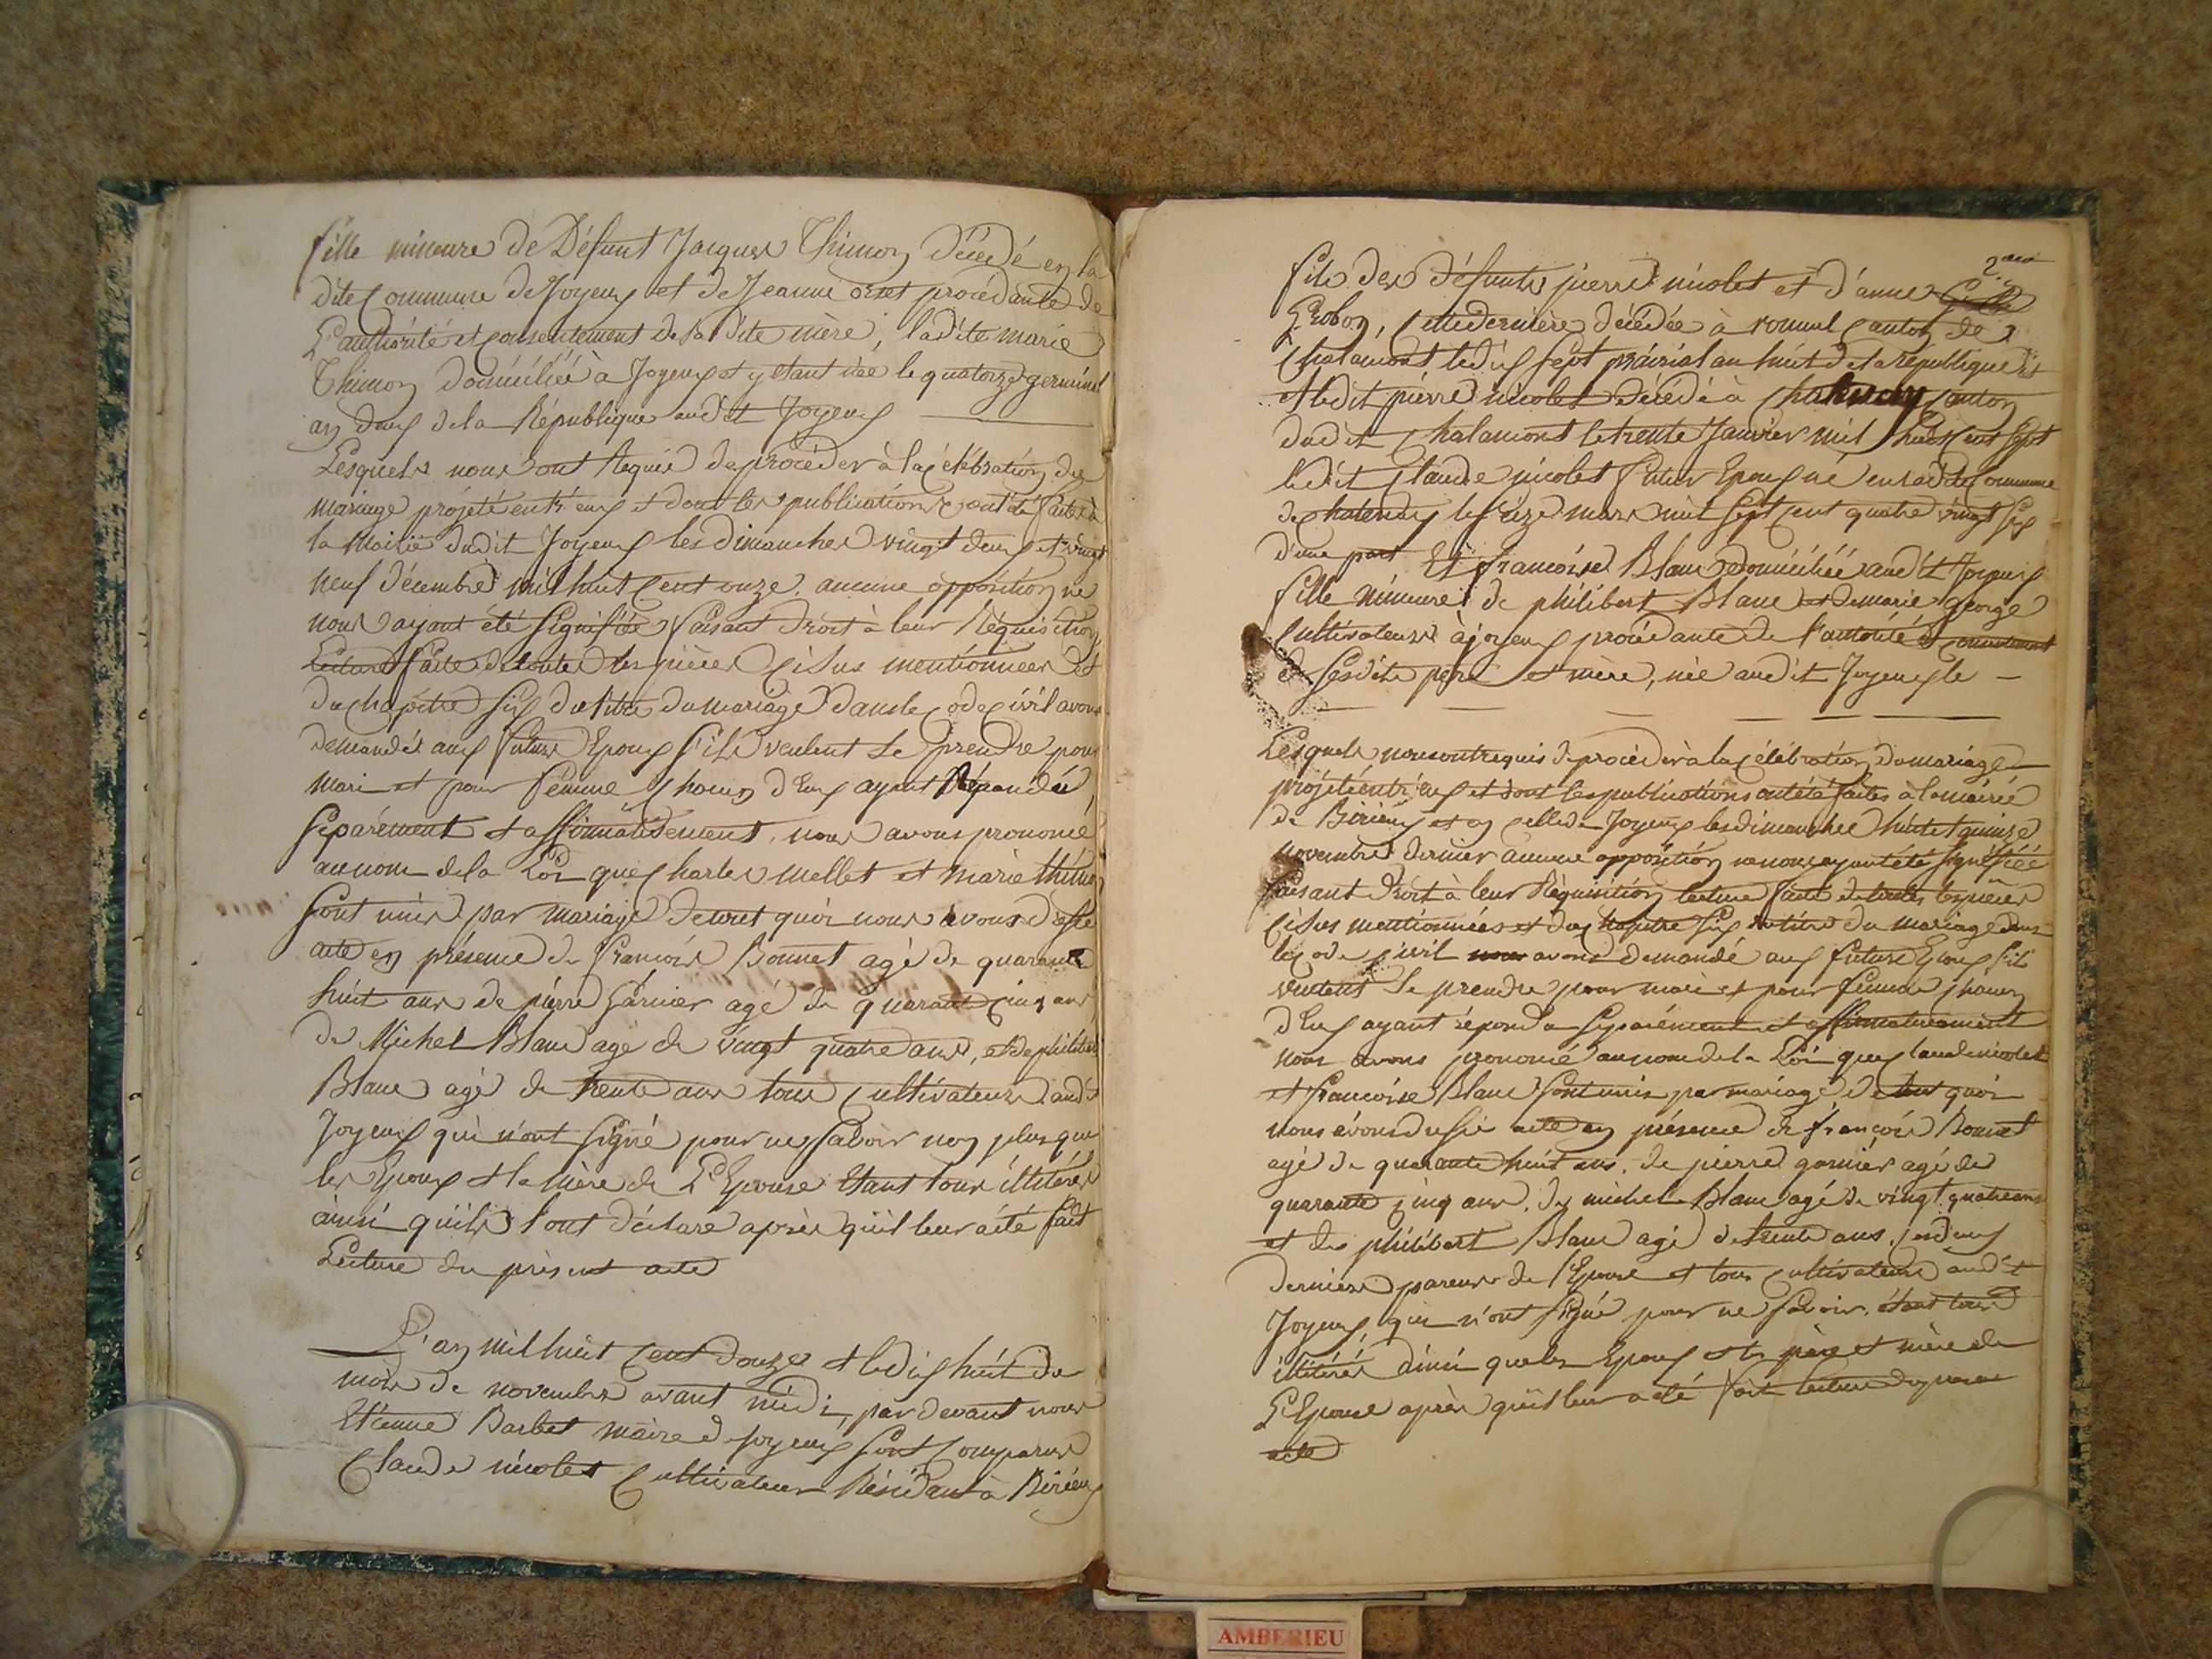 fille mineure de Défunt Jacques Thimon décédé en la
dite Commune de Joyeux et de Jeanne orset procédante de
L'authorité et consentement de sa dite mère, ladite marie
Thimon domiciliée à Joyeux et y étant née le quatorze germinal
an deux de la République audit Joyeux
Lesquels nous ont Requis de procéder à la Célébration du
mariage projété entr'eux et dont les publications ont été faites à
la Mairie dudit Joyeux les dimanches vingt deux et vingt
neuf décembre mil huit Cent onze. aucune opposition ne
nous ayant été Signifiée faisant droit à leur Réquisition
Lecture faite de toutes les pièces Cisus mentionnées et
du chapitre six du titre du mariage dans le Code Civil avons
demandé aux futurs Epoux S'ils veulent se prendre pour
mari et pour femme Chacun d'Eux ayant Répondu
Séparément et affirmativement, nous avons prononcé
au nom de la Loi que Charles mellet et marie thimon
Sont unis par mariage de tout quoi nous avons dressé
acte en présence de françois Bonnet agé de quarante
huit ans de pierre Garnier agé de quarante Cinq ans
de Michel Blanc agé de vingt quatre ans, et de philibert
Blanc agé de trente ans tous Cultivateurs audit
Joyeux qui n'ont Signé pour ne Savoir non plus que
les Epoux et la mère de L'Epouse Etant tous illitérés
ainsi qu'ils l'ont déclaré après qu'il leur a été fait
Lecture du présent acte
L'an mil huit Cent douze et le dix huit du
mois de novembre avant midi, par devant nous
Etienne Barbet maire de Joyeux Sont Comparus
Claude nicolet Cultivateur Résidant à Birieux
fils des défunts pierre nicolet et d'anne
Grobon, Cette dernière décédée à ronuel Canton de
Chalamont le dix Sept prairial an huit de la république
et ledit pierre nicolet décédé à Chatenay Canton
dudit Chalamont le trente Janvier mil huit Cent Sept
ledit Claude nicolet futur Epoux né en ladite Commune
de Chatenay le seize mars mil Sept Cent quatre vingt Six
d'une part Et françoise Blanc domiciliée audit Joyeux
fille mineure de philibert Blanc et de marie george
Cultivateurs à joyeux procédante de l'autorité et consentement
de Sesdits père et mère, née audit Joyeux le
Lesquels nous ont requis de procéder à la Célébration du mariage
projété entr'eux et dont les publications ont été faites à la mairie
de Birieux et en Celle de Joyeux les dimanches huit et quinze
novembre dernier aucune opposition ne nous ayant été Signifiée
faisant droit à leur Réquisition lecture faite de toutes les pièces
Cisus mentionnées et du Chapitre Six du titre du mariage dans
le Code Civil avons demandé aux futurs Epoux S'ils
veulent Se prendre pour mari et pour femme Chacun
d'Eux ayant répondu Séparément et affirmativement
nous avons prononcé au nom de la Loi que Claude nicolet
et françoise Blanc Sont unis par mariage de tout quoi
nous avons dressé acte en présence de françois Bonnet
agé de quarante huit ans. de pierre garnier agé de
quarante Cinq ans. de michel Blanc agé de vingt quatre ans
et de philibert Blanc agé de trente ans. Ces deux
derniers parens de l'Epouse et tous Cultivateurs audit
Joyeux qui n'ont Signé pour ne Savoir. étant tous
illitérés ainsi que les Epoux et les père et mère de
L'Epouse après qu'il leur a été fait lecture du présent
acte
AMBERIEU